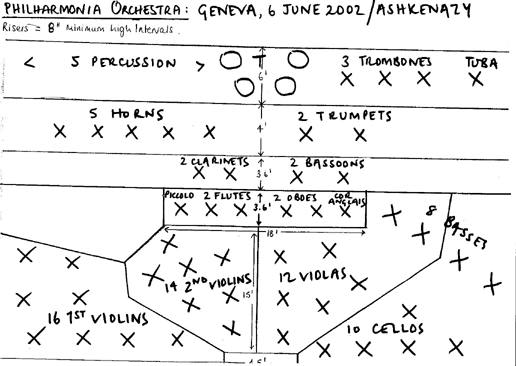 PHILHARMONIA ORCHESTRA: GENEVA, 6 JUNE 2002/ASHKENAZY
Risers = 8" minimum high intervals.
< 5 PERCUSSION >
T
3 TROMBONES TUBA
6'
5 HORNS
2 TRUMPETS
4'
2 CLARINETS
2 BASSOONS
3.6'
PICCOLO 2 FLUTES 2 OBOES COR ANGLAIS
3.6'
18'
8 BASSES
14 2ND VIOLINS
12 VIOLAS
15'
16 1ST VIOLINS
10 CELLOS